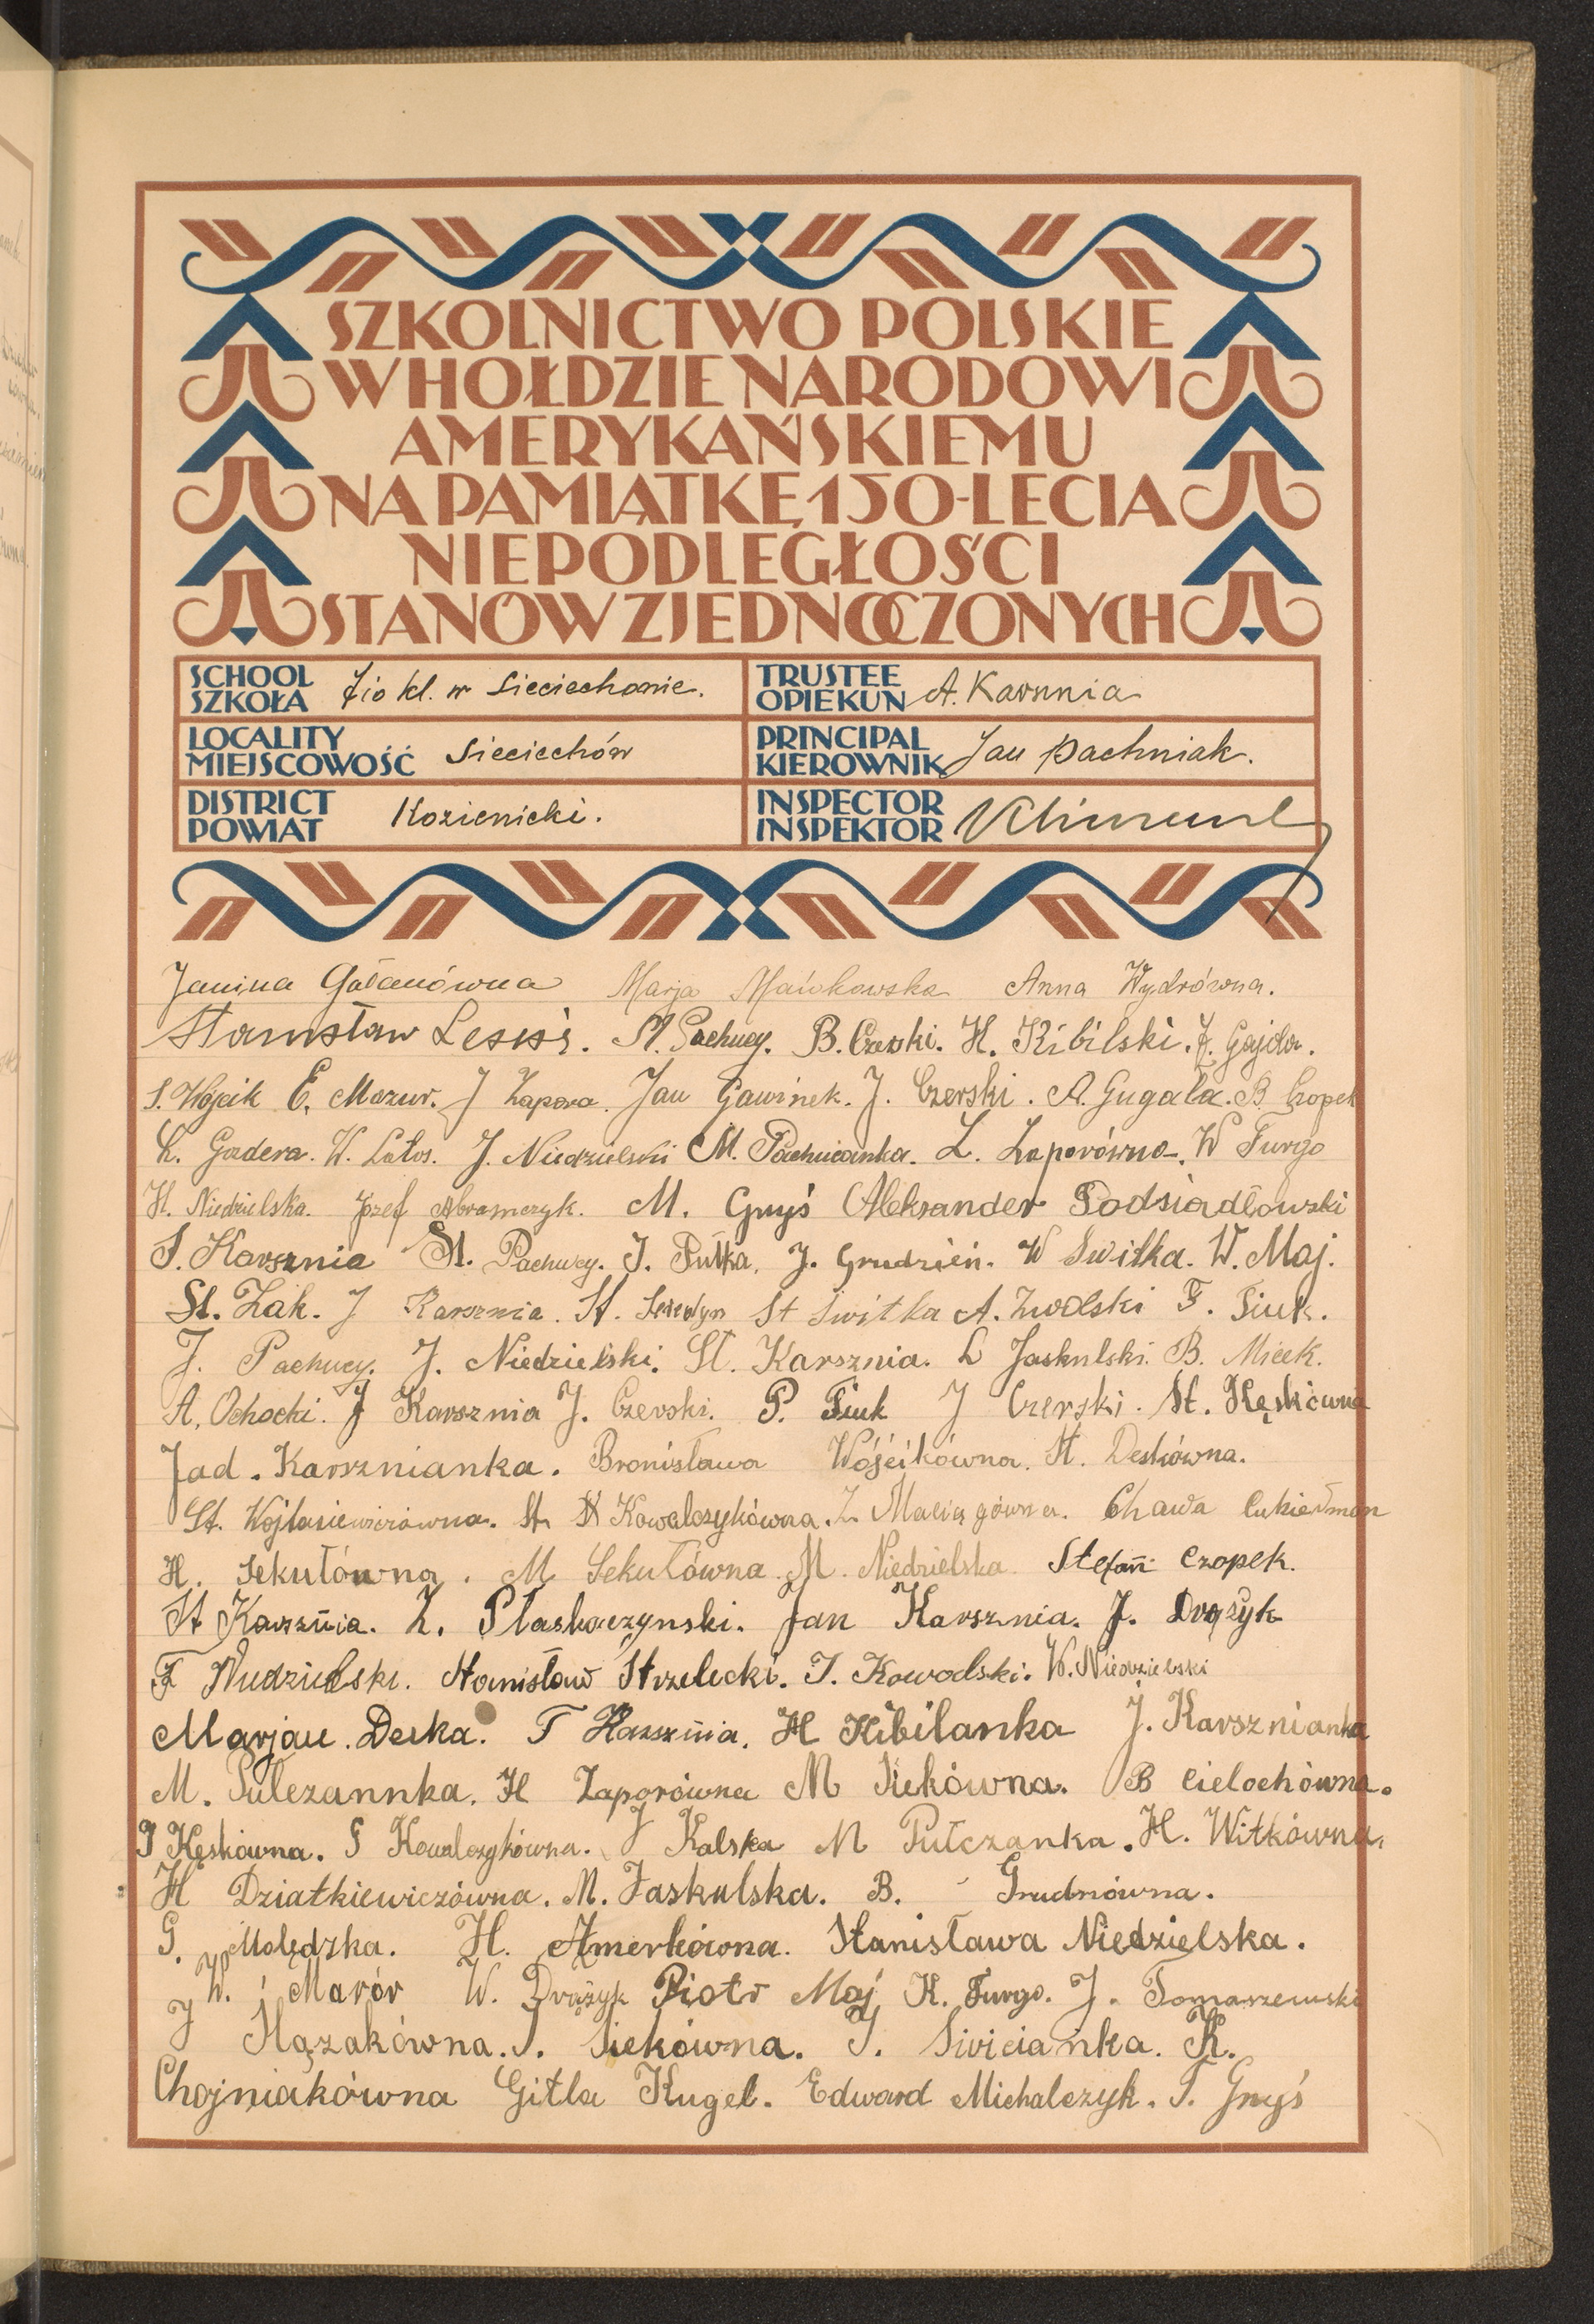 SZKOLNICTWO POLSKIE
W HOŁDZIE NARODOWI
AMERYKAŃSKIEMU
NA PAMIĄTKĘ 150-LECIA
NIEPODLEGŁOŚCI
STANÓW ZJEDNOCZONYCH
SCHOOL
SZKOŁA 7io kl. w Sieciechowie.
TRUSTEE
OPIEKUN A. Karsznia
LOCALITY
MIEJSCOWOŚĆ Sieciechów
PRINCIPAL
KIEROWNIK Jan Pachniak.
DISTRICT
POWIAT Kozienicki.
INSPECTOR
INSPEKTOR
Janina Gałanówna Marja Mańkowska Anna Wydrówna.
Stanisław Lesisz. St. Pachucy. B. Czerski. H. Kibilski. F. Gajda.
S. Wójcik E. Mazur. J Zapora. Jan Gawinek. J. Czerski. A. Gugała. B. Czopek
K. Gądera. W. Latos. J. Niedzielski M. Pachucanka. L. Zaporówna. W Furgo
H. Niedzielska. Józef Abramczyk. M. Gnyś Aleksander Podsiadłowski
S. Karsznia St. Pachucy. J. Pułka. J. Grudzień. W Switka. W. Maj.
St. Żak. J Karsznia. St. Seredyn St Switka A. Zwolski F. Siuk.
J. Pachucy. J. Niedzielski. St. Karsznia. L Jaskulski. B. Micek.
A. Ochocki. J Karsznia J. Czerski. P. Siuk J Czerski. St. Kęskówna
Jad. Karsznianka. Bronisława Wójcikówna. St. Deskówna.
St. Wojtasiewiczówna. St. Kowalczykówna. Z. Maciągówna. Chawa Cukierman
H. Sekułówna. M Sekułówna. M. Niedzielska Stefan Czopek.
St Karsznia. Z. Płaskaczynski. Jan Karsznia. J. Drążyk
F Niedzielski. Stanisław Strzelecki. J. Kowalski. W. Niedzielski
Marjan. Deska. T Karsznia. H Kibilanka J. Karsznianka
M. Pulczannka. H Zaporówna M Siekówna. B Cielochówna.
J Kęskówna. S Kowalczykówna. J Kalska M Pułczanka. H. Witkówna.
H Działkiewiczówna. M. Jaskulska. B. Grudnówna.
G. Molędzka. H. Amerkówna. Stanisława Niedzielska.
W. Marór W. Drążyk Piotr Maj K. Furgo. J. Tomaszewski
J Ślązakówna. J. Siekówna. J. Siviciańka. K.
Chojniakówna Gitla Kugel. Edward Michalczyk. T. Gnyś